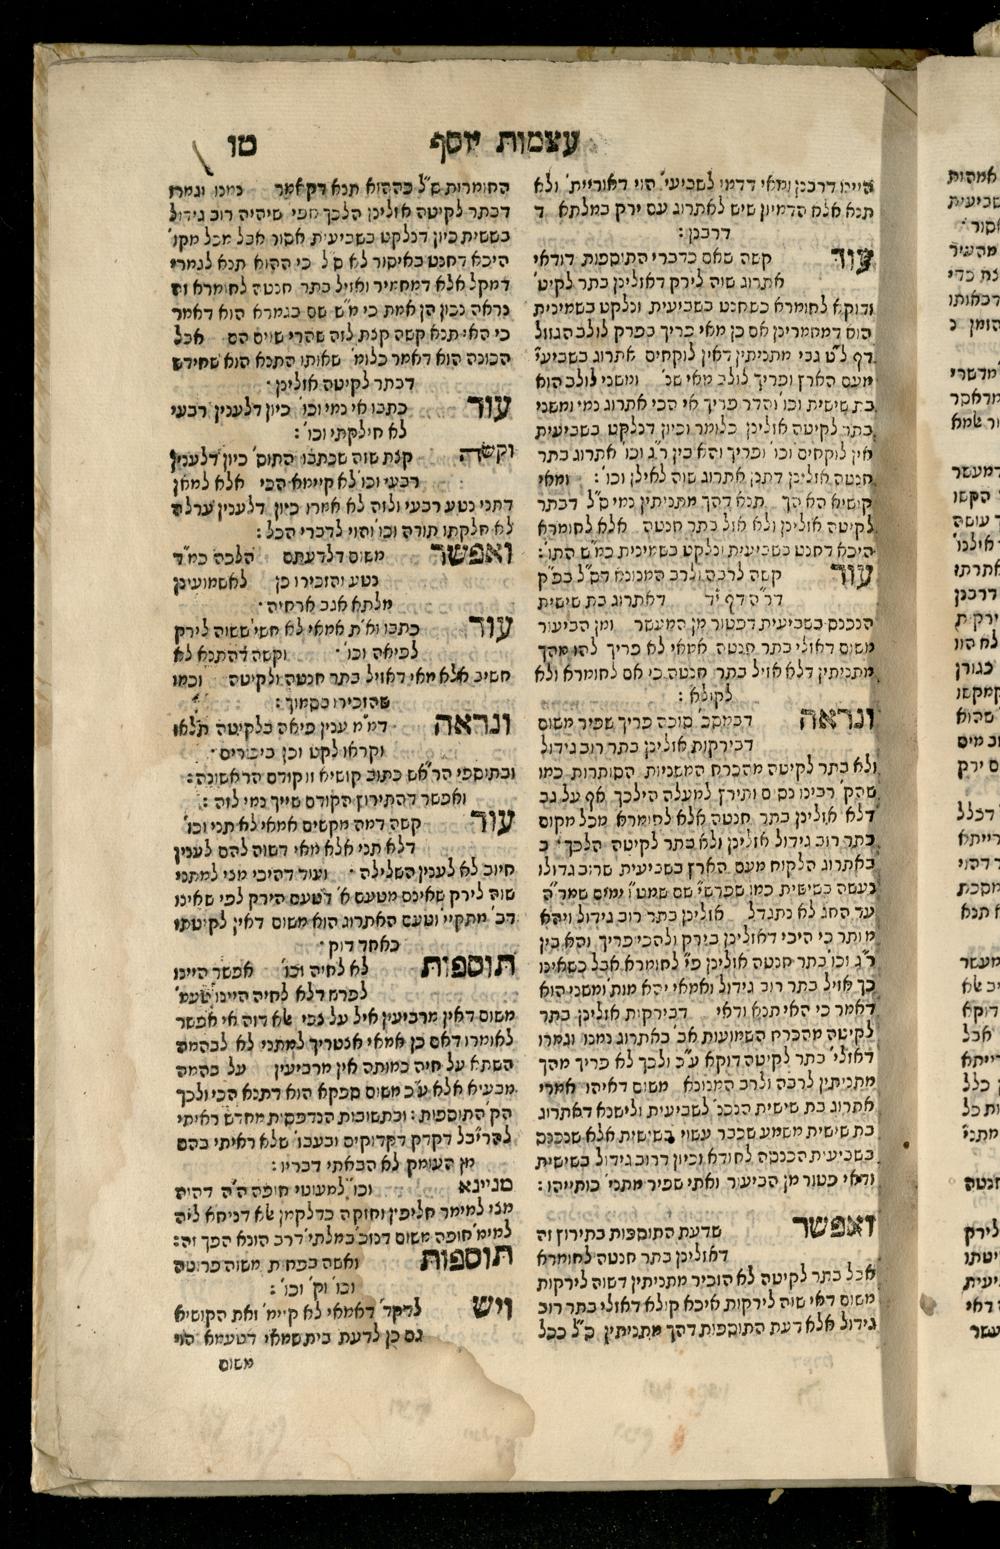 עצמות יוסף
טו
היינו דרבנן ומאי דדמי לשביעי' הוי דאוריית' ולא
תנא אלא הדמיון שיש לאתרוג עם ירק במלתא ד
דרבנן :
עוד קשה שאם כדברי התוספות דודאי
אתרוג שוה לירק דאזלינן בתר לקיט'
ודוקא לחומרא כשחנט בשביעית ונלקט בשמינית
הוא דמחמרינן אם כן מאי פריך בפרק לולב הגזול
דף ל"ט גבי מתניתין דאין לוקחים אתרוג בשביעי'
מעם הארץ ופריך לולב מאי שנ' ומשני לולב הוא
בת שישית וכו' והדר פריך אי הכי אתרוג נמי ומשני
בתר לקיטה אזלינן כלומר וכיון דנלקט בשביעית
אין לוקחים וכו' ופריך והא בין ר"ג וכו' אתרוג בתר
חנטה אזלינן דתנן אתרוג שוה לאילן וכו' : ומאי
קושיא הא הך תנא דהך מתניתין נמי ס"ל דבתר
לקיטה אזלינן ולא אזל בתר חנטה אלא לחומרא
היכא דחנט בשביעית ונלקט בשמינית כמ"ש התו' :
עוד קשה לרבה ולרב המנונא דס"ל בפ"ק
דר"ה דף יד דאתרוג בת שישית
הנכנס בשביעית דפטור מן המעשר ומן הביעור
משום דאזלי בתר חנטה אמאי לא פריך להו מהך
מתניתין דלא אזיל בתר חנטה כי אם לחומרא ולא
לקולא :
ונראה דבמסכ' סוכה פריך שפיר משום
דבירקות אזלינן בתר רוב גידול
ולא בתר לקיטה מהכרח המשניות הסותרות כמו
שהק' רבינו נסים ותירץ למעלה הילכך אף על גב
דלא אזלינן בתר חנטה אלא לחומרא מכל מקום
בתר רוב גידול אזלינן ולא בתר לקיטה הלכך ב
באתרוג הלקוח מעם הארץ בשביעית שרוב גדולו
נעשה בשישית כמו שפרש"י שם
עד החג לא נתגדל אזלינן בתר רוב גידול ויהא
מותר כי היכי דאזלינן בירק ולהכי פריך והא בין
ר"ג וכו' בתר חנטה אזלינן פי' לחומרא אבל כשאינו
כך אזיל בתר רוב גידול ואמאי יהא מות' ומשני הוא
דאמר כי האי תנא ודאי דבירקות אזלינן בתר
לקיטה מהכרח השמועות אב' באתרוג נמנו וגמרו
דאזלי' בתר לקיטה דוקא ע"כ ולכך לא פריך מהך
מתניתין לרבה ולרב המנונא משום דאיהו אמרי
אתרוג בת שישית הנכנ' לשביעית ולישנא דאתרוג
בת שישית משמע שכבר עשוי בשישית אלא שנכנס
בשביעית הכנסה לחודא וכיון דרוב גידול בשישית
ודאי פטור מן הביעור ואתי שפיר מתני' כותייהו :
ואפשר שדעת התוספות בתירוץ זה
דאזלינן בתר חנטה לחומרא
אבל בתר לקיטה לא הוכיר מתניתין דשוה לירקות
משום דאי שוה לירקות איכא קולא דאזלי בתר רוב
גידול אלא דעת התוספות דהך מתניתין ס"ל ככל
החומרות ס"ל כההוא תנא דקאמר נמנו וגמרו
דבתר לקיטה אזלינן הלכך אפי' שיהיה רוב גידול
בששית כיון דנלקט בשביעית אסור אבל מכל מקו'
היכא דחנט באיסור לא ס"ל כי ההוא תנא לגמרי
דמקל אלא דמחמיר ואזיל בתר חנטה לחומרא וזה
נראה נכון הן אמת כי מ"ש שם בגמרא הוא דאמר
כי האי תנא קשה קצת לזה שהרי שוים הם אבל
הכונה הוא דאמר כלומ' שאותו התנא הוא שחידש
דבתר לקיטה אזלינן .
עוד כתבו אי נמי וכו' כיון דלענין רבעי
לא חילקתי וכו' :
וקשה קצת שזה שכתבו התוס' כיון דלענין
רבעי וכו' לא קיימא הכי אלא למאן
דתני נטע רבעי ולזה לא אמרו כיון דלענין ערלה
לא חלקתו תורה וכו' והוי לדברי הכל :
ואפשר משום דלדעתם הלכה כמ"ד
נטע והזכירו כן לאשמועינן
מלתא אגב אחריה .
עוד כתבו וא"ת אמאי לא חשי' ששוה לירק
לפיאה וכו' . וקשה דהתנא לא
חשיב אלא מאי דאזיל בתר חנטה ולקיטה וכמו
שהזכירו בסמוך :
ונראה דמ"מ ענין פיאה בלקיטה תלאו
וקראו לקט וכן ביכורים .
ובתוספי הרא"ש כתוב קושיא זו קודם הראשונה :
ואפשר דהתירוץ הקודם שייך נמי לזה :
עוד קשה דמה מקשים אמאי לא תני וכו'
דלא תני אלא מאי דשוה להם לענין
חיוב לא לענין השלילה . ועוד דהיכי מני למתני
שוה לירק שאינם מטעם א' דטעם הירק לפי שאינו
דב' מתקיי' וטעם האתרוג הוא משום דאין לקיטתו
כאחד דוק .
תוספות לא לחיה וכו' אפשר היינו
לפרה דלא לחיה היינו טעמ'
משום דאין מרביעין איל על גבי
לאומרו דאם כן אמאי אצטריך למתני לא לבהמה
השתא על חיה כמותה אין מרביעין על בהמה
מבעיא אלא ע"כ משום ספקא הוא דתנא הכי ולכך
הק' התוספות : ובתשובות הנדפסות מחדש ראיתי
להרי"בל דקדק דקדוקים ובעבו' שלא ראיתי בהם
מן העומק לא הבאתי דבריו :
מניינא וכו' למעוטי חופה ה"ה דהוה
מצי למימר חליפין וחזקה כדלקמן דניחא ליה
למימ' חופה משום דנזכ' במלתי' דרב הונא הפך זה :
תוספות ואשה בפחות משוה פרוטה
וכו' וק' וכו' :
ויש לדקד' דאמאי לא קיימ' זאת הקושיא
גם כן לדעת בית שמאי דטעמא הוי
משום